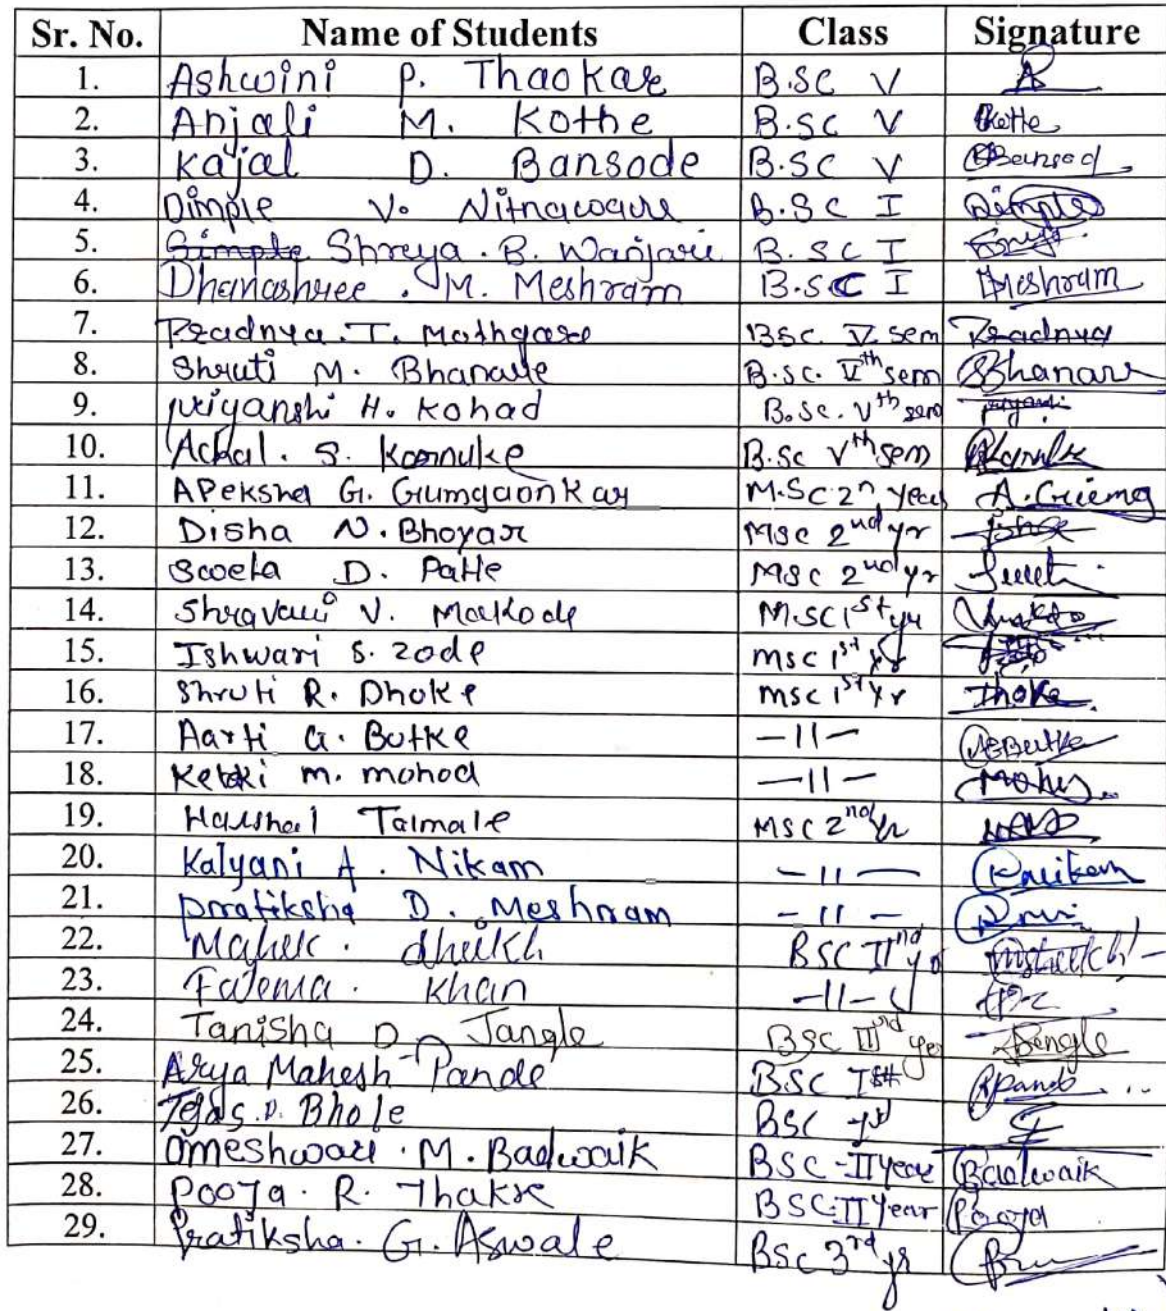 Sr. No. Name of Students Class Signature
1. Ashwini P. Thaokar B.SC V
2. Anjali M. Kothe B.SC V Kothe
3. Kajal D. Bansode B.SC V Bansod
4. Dimple V. Nitnaware B.SC I Dimple
5. Shreya . B. Wanjari B. SC I
6. Dhanashree . M. Meshram B.SC I Meshram
7. Pradnya . T. BSC. V sem Pradnya
8. Shruti M. Bhanare B.SC. Vth sem Bhanare
9. priyanshi H. Kohad B.Sc. Vth sem
10. Achal. S. B.SC Vth sem
11. APeksha G. Gumgaonkar M.SC 2n year
12. Disha N. Bhoyar MSC 2nd yr
13. Sweta D. Patle MSC 2nd yr
14. Shravani V. Markode M.SC 1st yr
15. Ishwari S. Zode MSC 1st yr
16. Shruti R. Dhoke MSC 1st yr
17. Aarti G. Butke -11-
18. Ketki M. Mohod -11-
19. Harshal Talmale MSC 2nd yr
20. Kalyani A. Nikam -11-
21. Pratiksha D. Meshram -11-
22. Mahek . Sheikh BSC IInd yr
23. Fatema . Khan -11-
24. Tanisha D. Jangle BSC yer Jangle
25. Arya Mahesh Pande BSC Ist
26. Tejas. D. Bhole BSC
27. Omeshwari . M. Badwaik BSC-II year Badwaik
28. Pooja . R. Thakre BSC-II Year Pooja
29. Pratiksha . G. Aswale BSC 3rd yr